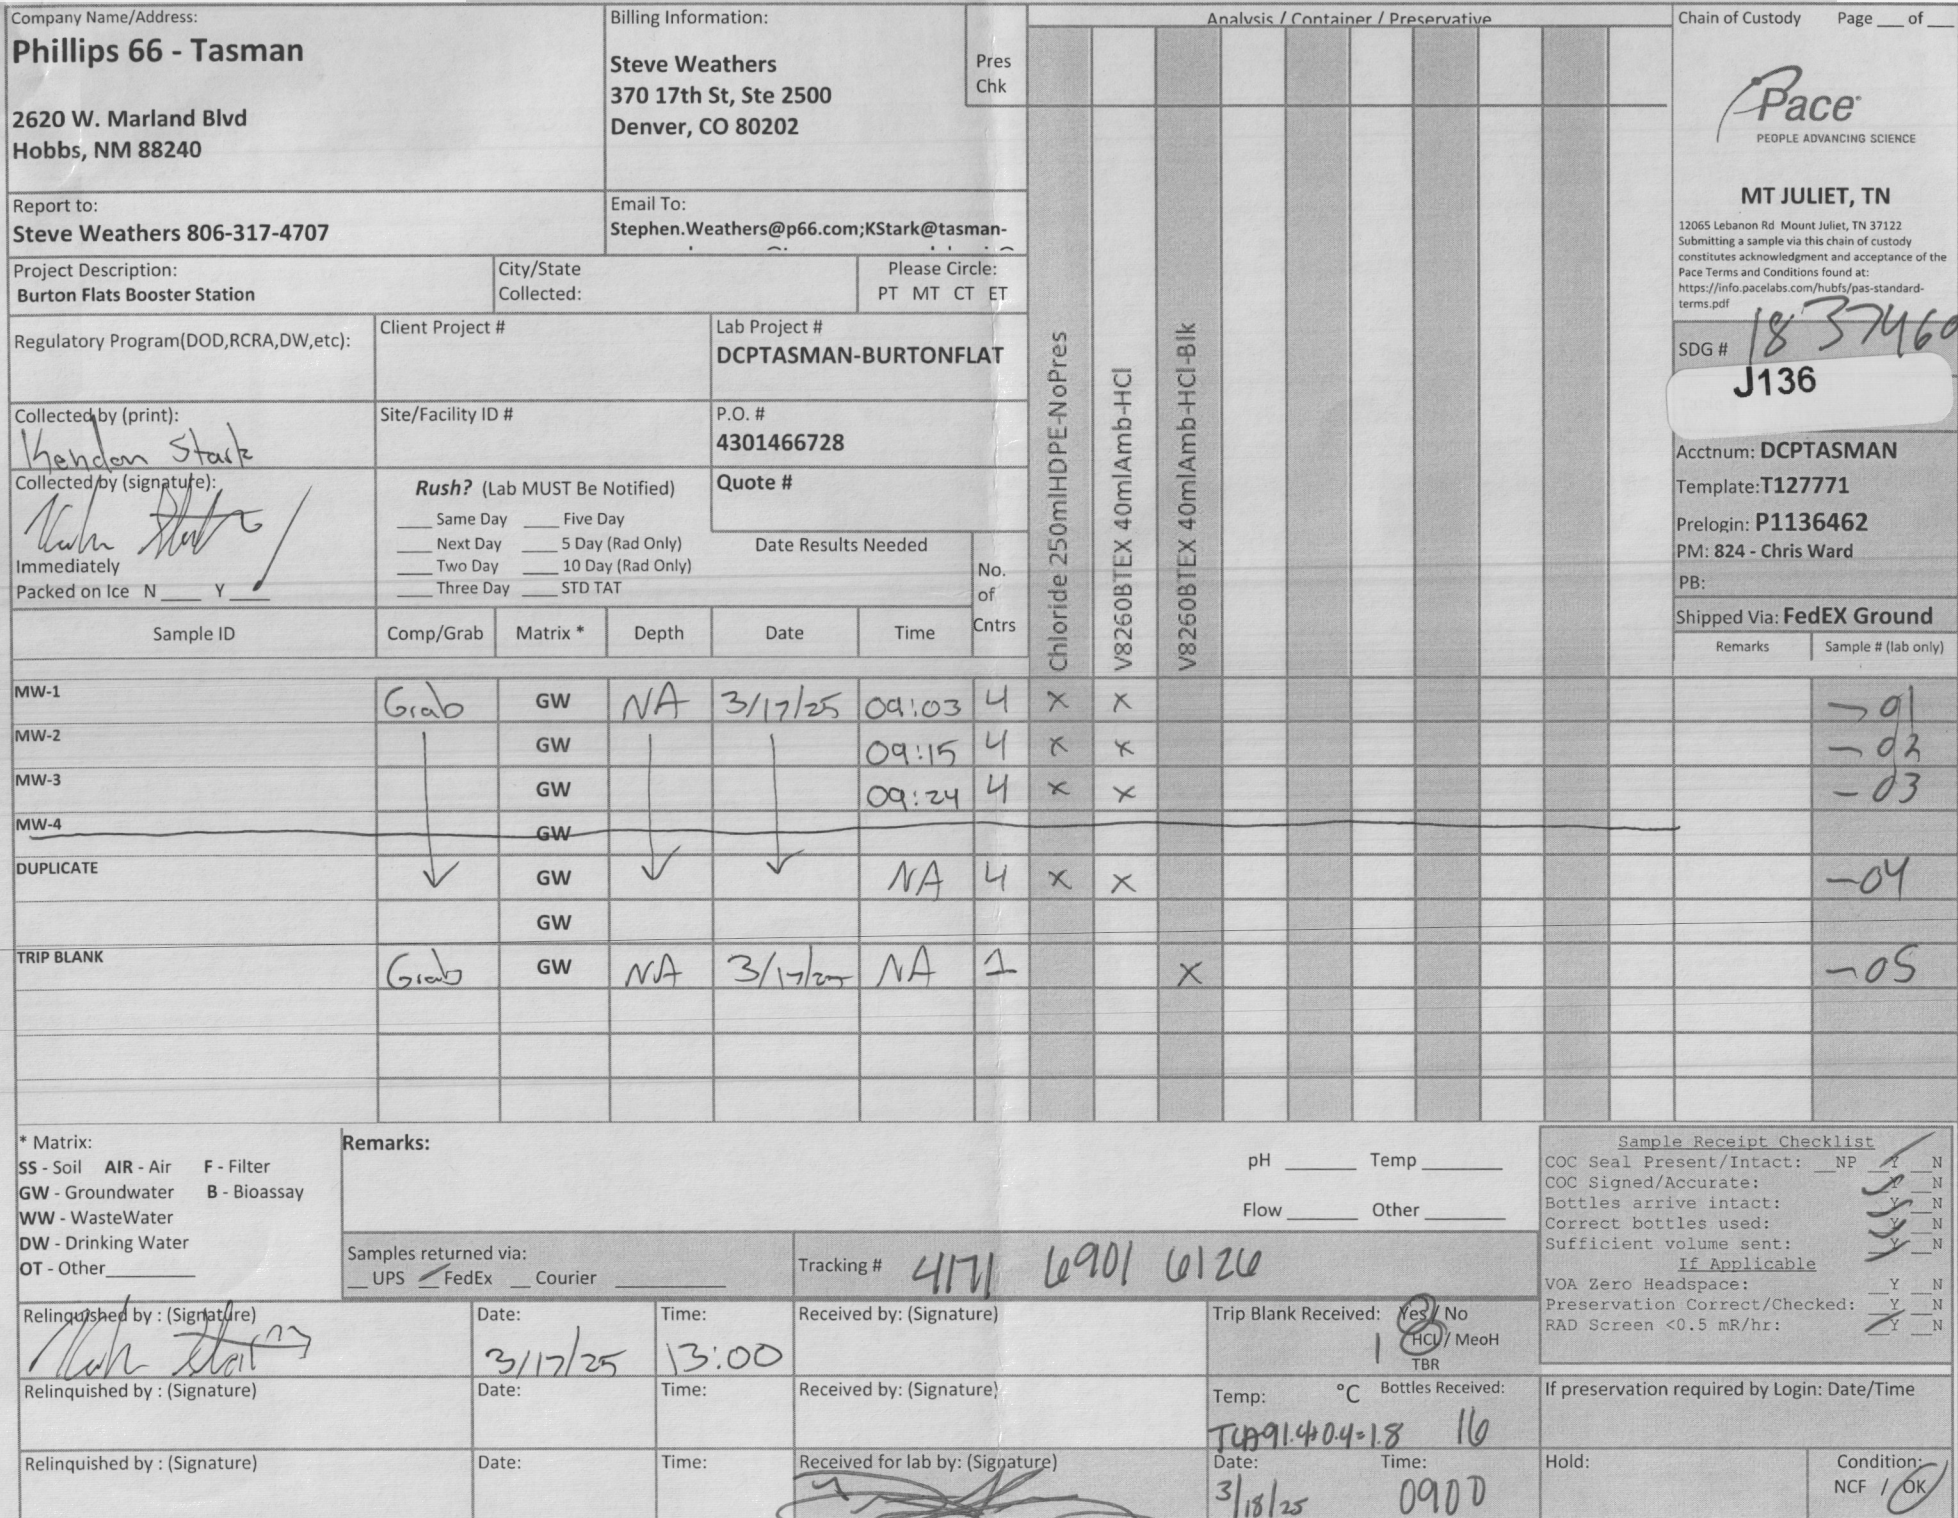 Company Name/Address:
Phillips 66 - Tasman
2620 W. Marland Blvd
Hobbs, NM 88240
Billing Information:
Steve Weathers
370 17th St, Ste 2500
Denver, CO 80202
Pres
Chk
Analysis / Container / Preservative
Chain of Custody Page ___ of ___
Pace
PEOPLE ADVANCING SCIENCE
MT JULIET, TN
12065 Lebanon Rd Mount Juliet, TN 37122
Submitting a sample via this chain of custody
constitutes acknowledgment and acceptance of the
Pace Terms and Conditions found at:
https://info.pacelabs.com/hubfs/pas-standard-
terms.pdf
Report to:
Steve Weathers 806-317-4707
Email To:
Stephen.Weathers@p66.com;KStark@tasman-
Project Description:
Burton Flats Booster Station
City/State
Collected:
Please Circle:
PT MT CT ET
Regulatory Program(DOD,RCRA,DW,etc):
Client Project #
Lab Project #
DCPTASMAN-BURTONFLAT
SDG # 1837460
J136
Collected by (print):
Kendon Stark
Site/Facility ID #
P.O. #
4301466728
Acctnum: DCPTASMAN
Template:T127771
Prelogin: P1136462
PM: 824 - Chris Ward
PB:
Shipped Via: FedEX Ground
Collected by (signature):
Immediately
Packed on Ice N ____ Y ____
Rush? (Lab MUST Be Notified)
___ Same Day ___ Five Day
___ Next Day ___ 5 Day (Rad Only)
___ Two Day ___ 10 Day (Rad Only)
___ Three Day ___ STD TAT
Quote #
Date Results Needed
No.
of
Cntrs
Chloride 250mlHDPE-NoPres
V8260BTEX 40mlAmb-HCl
V8260BTEX 40mlAmb-HCl-Blk
Sample ID Comp/Grab Matrix * Depth Date Time Remarks Sample # (lab only)
MW-1 Grab GW NA 3/17/25 09:03 4 X X -01
MW-2 GW 09:15 4 X X -02
MW-3 GW 09:24 4 X X -03
MW-4 GW
DUPLICATE GW NA 4 X X -04
GW
TRIP BLANK Grab GW NA 3/17/25 NA 1 X -05
* Matrix:
SS - Soil AIR - Air F - Filter
GW - Groundwater B - Bioassay
WW - WasteWater
DW - Drinking Water
OT - Other__________
Remarks:
pH _______ Temp ________
Flow _______ Other ________
Samples returned via:
__ UPS __ FedEx __ Courier __________
Tracking # 4171 6901 6126
Sample Receipt Checklist
COC Seal Present/Intact: __NP __Y __N
COC Signed/Accurate: __Y __N
Bottles arrive intact: __Y __N
Correct bottles used: __Y __N
Sufficient volume sent: __Y __N
If Applicable
VOA Zero Headspace: __Y __N
Preservation Correct/Checked: __Y __N
RAD Screen <0.5 mR/hr: __Y __N
Relinquished by : (Signature)
Date:
3/17/25
Time:
13:00
Received by: (Signature)
Trip Blank Received: Yes / No
1 HCL / MeoH
TBR
Relinquished by : (Signature)
Date:
Time:
Received by: (Signature)
Temp: °C Bottles Received:
1.4+0.4=1.8 16
If preservation required by Login: Date/Time
Relinquished by : (Signature)
Date:
Time:
Received for lab by: (Signature)
Date:
3/18/25
Time:
0900
Hold:
Condition:
NCF / OK